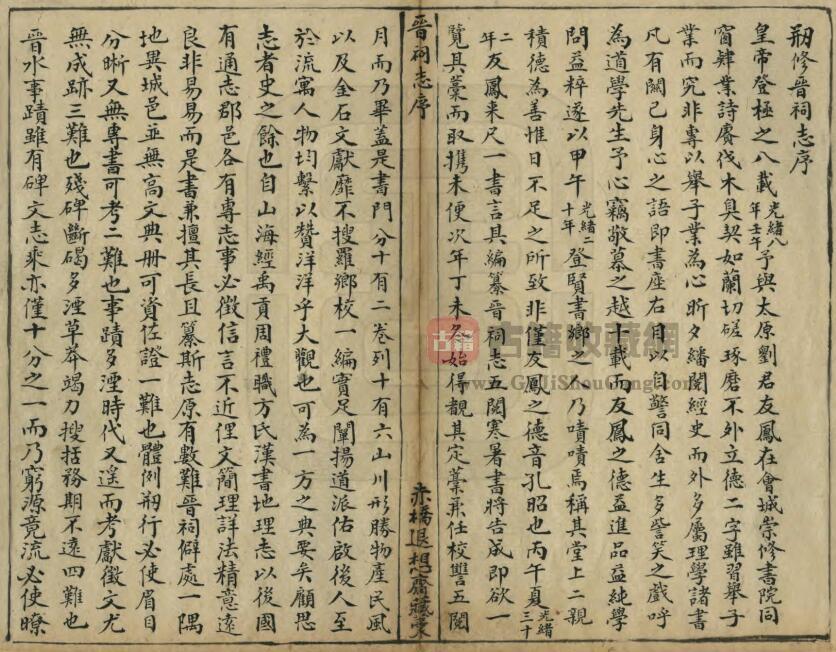 刱修晉祠志序
皇帝登極之八載光緒八年壬午予與太原劉君友鳳在會城崇修書院同
窗肄業詩賡伐木臭契如蘭切磋琢磨不外立德二字雖習舉子
業而究非專以舉子業為心昕夕繙閱經史而外多屬理學諸書
凡有關己身心之語即書座右用以自警同舍生多訾笑之戲呼
為道學先生予心竊敬慕之越十載而友鳳之德益進品益純學
問益粹遂以甲午光緒二十年登賢書鄉之人乃嘖嘖焉稱其堂上二親
積德為善惟日不足之所致非僅友鳳之德音孔昭也丙午夏光緒三十
二年友鳳来尺一書言其編纂晉祠志五閱寒暑書將告成即欲一
覽其藁而取携未便次年丁未冬始得覩其定藁兼任校讐五閱
晉祠志序
赤橋退想齋藏藁
月而乃畢蓋是書門分十有二卷列十有六山川形勝物產民風
以及金石文獻靡不搜羅鄉校一編實足闡揚道派佑啟後人至
於流寓人物均繫以贊洋洋乎大觀也可為一方之典要矣顧思
志者史之餘也自山海經禹貢周禮職方氏漢書地理志以後國
有通志郡邑各有專志事必徵信言不近俚文簡理詳法精意遠
良非易易而是書兼擅其長且纂斯志原有數難晉祠僻處一隅
地異城邑並無高文典册可資佐證一難也體例刱行必使眉目
分晰又無專書可考二難也事蹟多湮時代又遥而考獻徵文尤
無成跡三難也殘碑斷碣多湮草莽竭力搜括務期不遠四難也
晉水事蹟雖有碑文志乘亦僅十分之一而乃窮源竟流必使瞭
古籍收藏網
www.GuJiShouCang.com
古籍